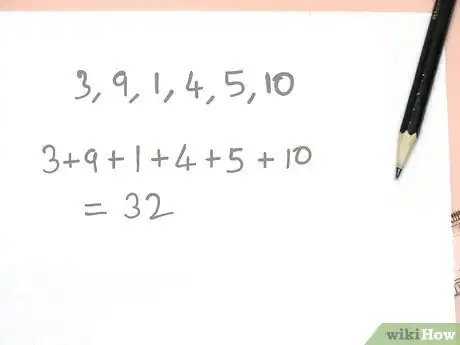 3, 9, 1, 4, 5, 10
3+9+1+4+5+10
= 32
wikiHow